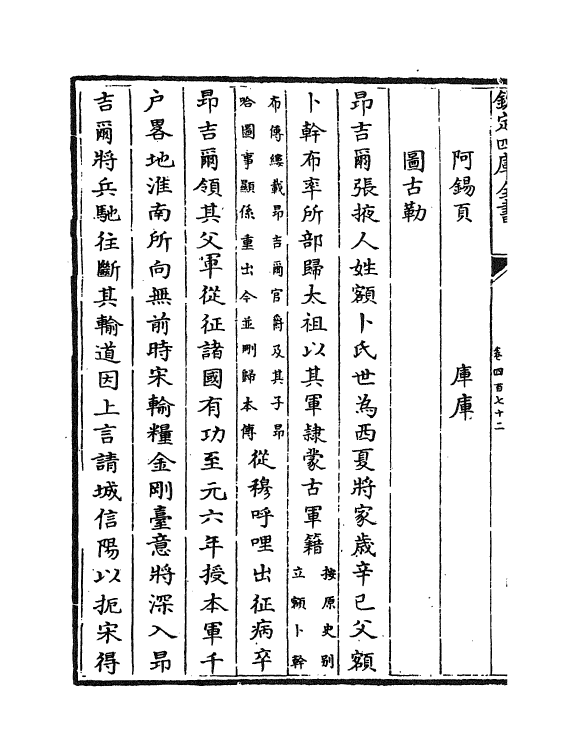 欽定四庫全書
卷四百七十二
阿錫頁　庫庫
圖古勒
昂吉爾張掖人姓額卜氏世為西夏將家歳辛巳父額
卜幹布率所部歸太祖以其軍隷蒙古軍籍按原史別立額卜幹
布傳縷載昂吉爾官爵及其子昂哈圖事顯係重出今並刪歸本傳從穆呼哩出征病卒
昂吉爾領其父軍從征諸國有功至元六年授本軍千
户畧地淮南所向無前時宋輸糧金剛臺意將深入昂
吉爾將兵馳往斷其輸道因上言請城信陽以扼宋得